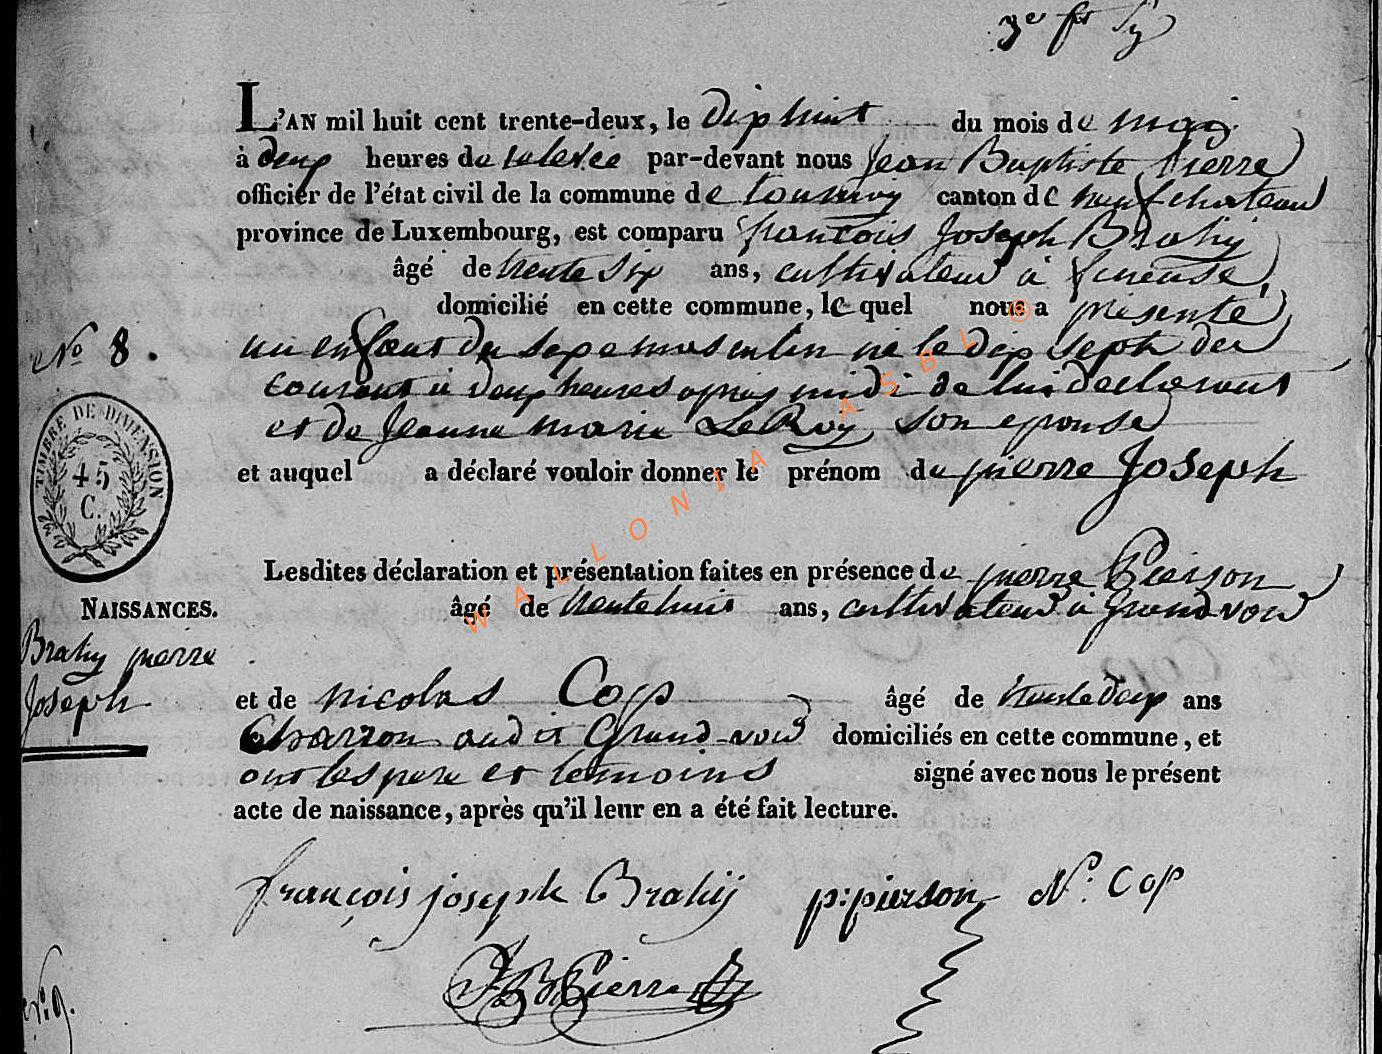 3e ft
L'AN mil huit cent trente-deux, le dix huit du mois de mai
à deux heures de relevée par-devant nous Jean Baptiste Pierre
officier de l'état civil de la commune de tournay canton de neufchateau
province de Luxembourg, est comparu françois Joseph Brahy
âgé de trente six ans, cultivateur à fineuse,
domicilié en cette commune, lequel nous a présenté
No 8.
un enfant du sexe masculin né le dix sept du
courant à deux heures après midi de lui declarant
et de Jeanne marie LeRoy son epouse
et auquel a déclaré vouloir donner le prénom de pierre Joseph
TIMBRE DE DIMENSION
45
C.
Lesdites déclaration et présentation faites en présence de pierre Pierson
NAISSANCES.
âgé de trente huit ans, cultivateur à Grand-voir
Brahy pierre
Joseph
et de nicolas Cop âgé de trente deux ans
Charron audit Grand-voir domiciliés en cette commune, et
ont les pere et temoins signé avec nous le présent
acte de naissance, après qu'il leur en a été fait lecture.
françois joseph Brahij p:pierson N: Cop
JB Pierre
No 9.
WALLONIA ASBL ©